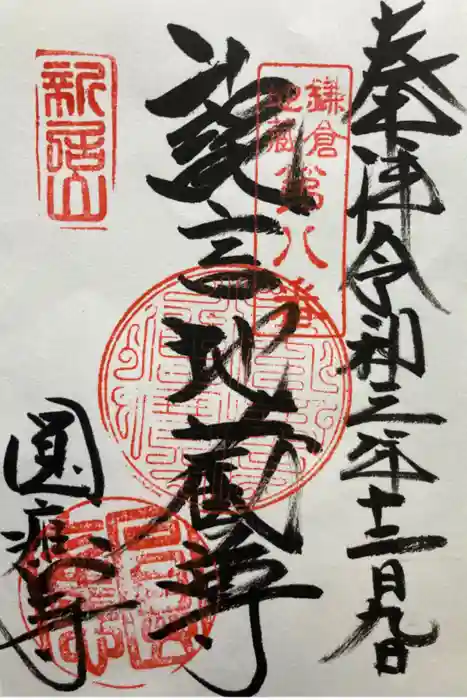 奉拝令和三年十二月九日
鎌倉
地蔵
第八番
詫言地蔵尊
新居山
圓應寺